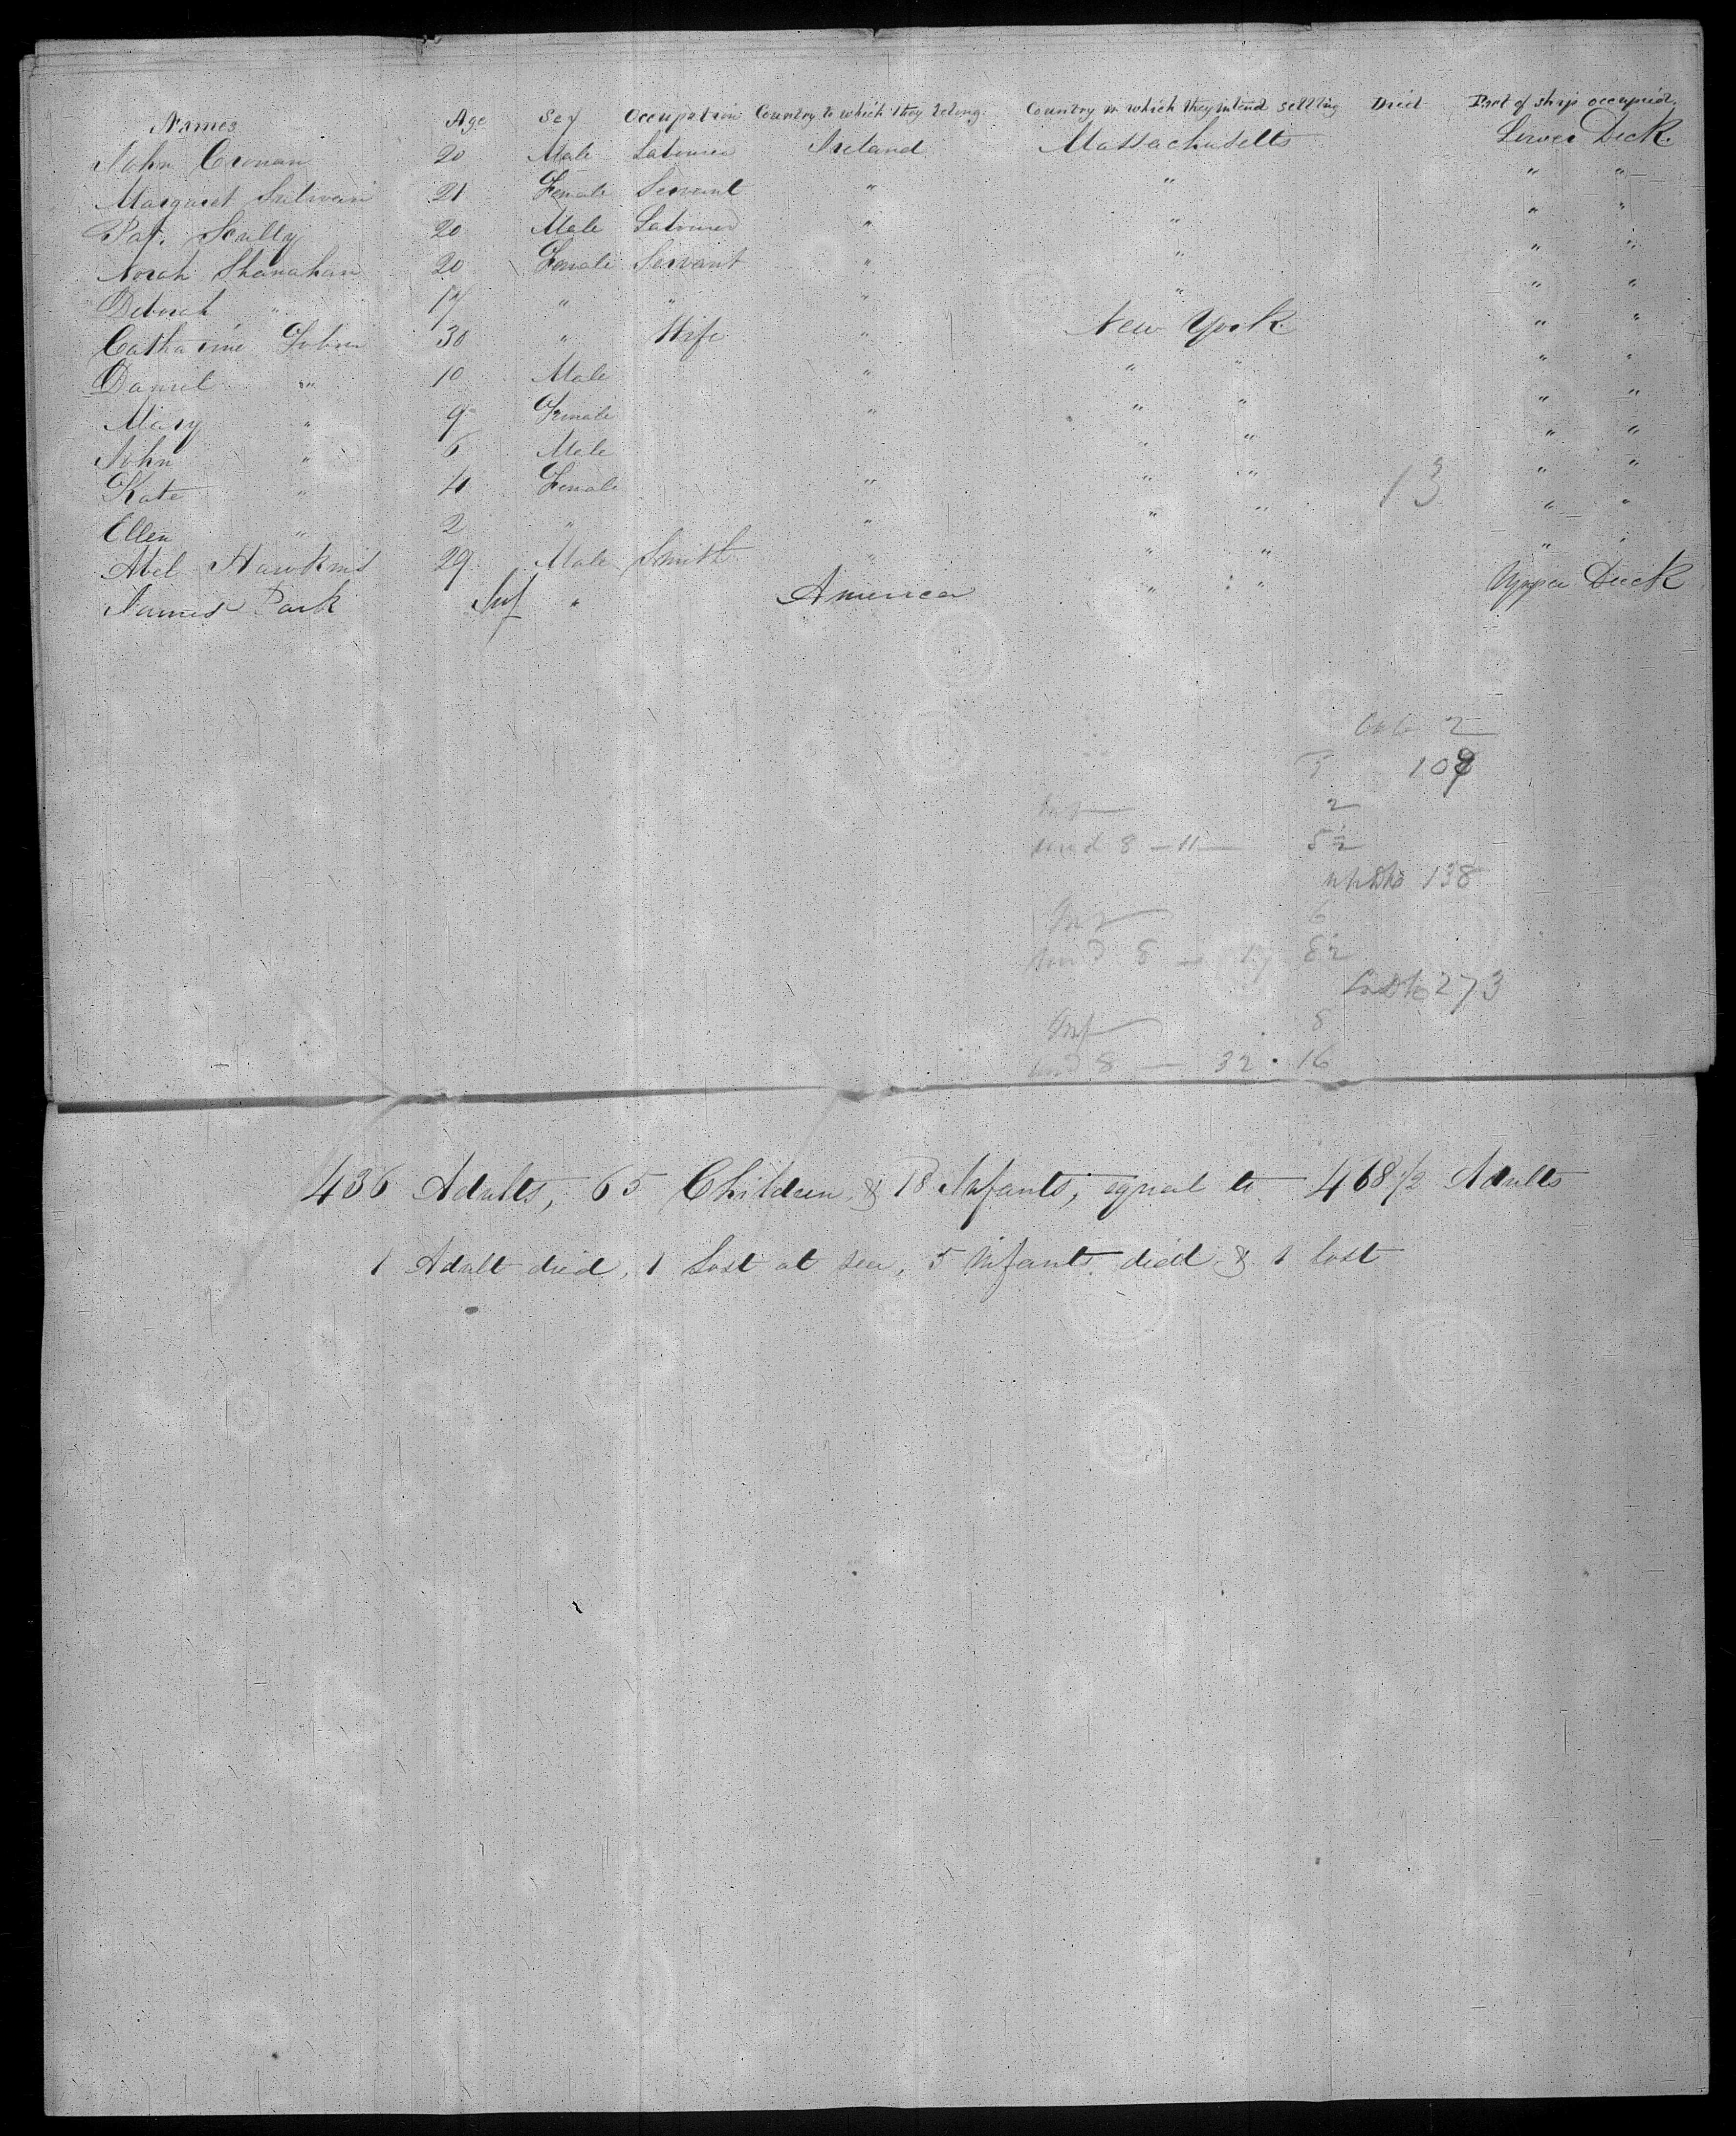 Names Age Sex Occupation Country to which they belong. Country in which they intend settling Died Part of ship occupied.
John Cronan 20 Male Labourer Ireland Massachusetts Lower Deck.
Margaret Sulivan 21 Female Servant " " " "
Pat. Scully 20 Male Labourer " " " "
Norah Shanahan 20 Female Servant " " " "
Deborah " 17 " " " " " "
Catharine Tobin 30 " Wife " New York. " "
Daniel " 10 Male " " " " "
Mary " 9 Female " " " " "
John " 6 Male " " " "
Kate " 4 Female " " " " "
Ellen " 2 " " " " " "
Abel Hawkins 29 Male Smith " " " " "
James Park Inf " America " " Upper Deck
13
Cab 2
109
Inf 2
und 8 - 11 5½
138
Inf 6
und 8 - 17 8½
273
Inf 8
und 8 - 32 . 16
436 Adults, 65 Children & 18 Infants, equal to 468 1/2 Adults
1 Adult died, 1 Lost at sea, 5 Infants died & 1 lost